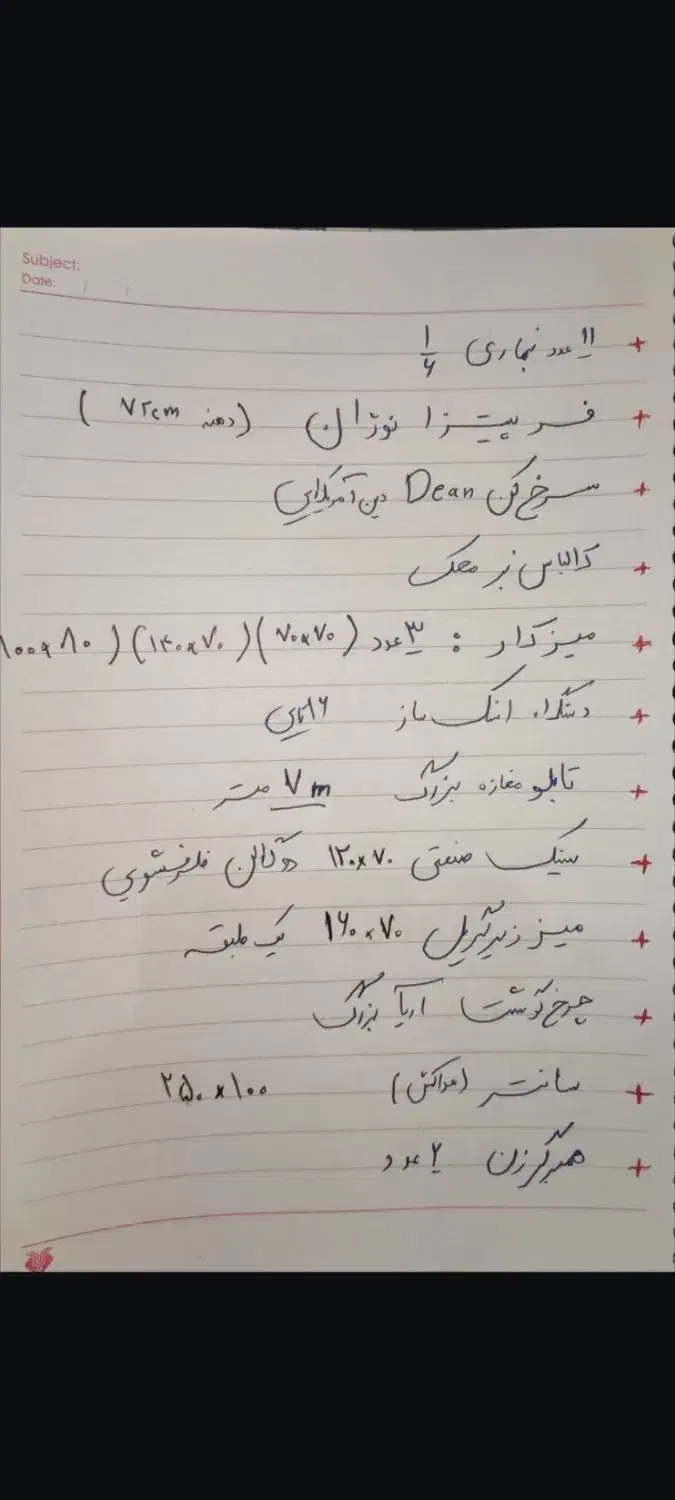 Subject:
Date: / /
+ ۱۱ عدد نجاری ۱/۶
+ فر پیتزا نوژان (دهنه ۷۲cm)
+ سرخ کن Dean دین آمریکایی
+ کالباس بر محک
+ میز کار : ۳ عدد (۷۰x۷۰) (۱۴۰x۷۰) (۱۰۰x۸۰
+ دستگاه اتک ساز ۱۶ تایی
+ تابلو مغازه بزرگ ۷m متر
+ سینک صنعتی ۱۲۰x۷۰ دو گالن ظرفشویی
+ میز زیر گریل ۱۶۰x۷۰ یک طبقه
+ چرخ گوشت آریا بزرگ
+ سانتر (مواکش) ۲۵۰x۱۰۰
+ همبرگرزن ۲ عدد